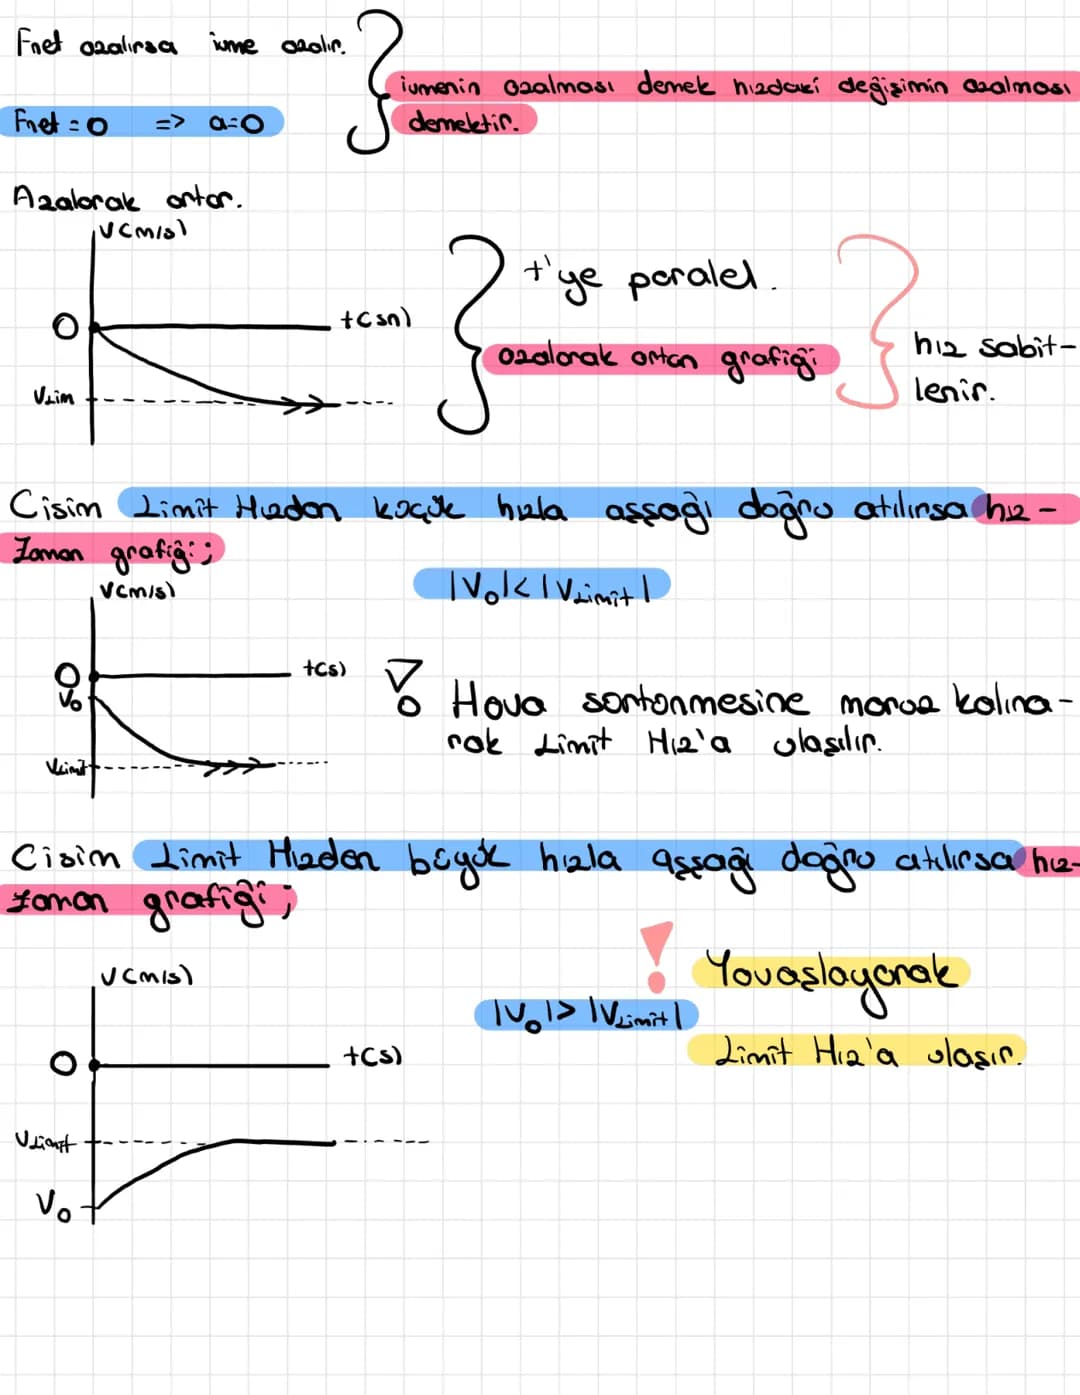 Fnet azalırsa ivme azalır.
ivmenin azalması demek hızdaki değişimin azalması
demektir.
Fnet = 0 => a=0
Azalarak artar.
V(m/s)
0
t(sn)
VLim
t'ye paralel.
azalarak artan grafiği
hız sabit-
lenir.
Cisim Limit Hızdan küçük hızla aşşağı doğru atılırsa hız-
Zaman grafiği;
V(m/s)
|V₀|< |VLimit|
0
t(s)
V₀
VLimit
Hava sürtünmesine maruz kalına-
rak Limit Hız'a ulaşılır.
Cisim Limit Hızdan büyük hızla aşşağı doğru atılırsa hız-
zaman grafiği;
V(m/s)
!
Yavaşlayarak
|V₀|> |VLimit|
Limit Hız'a ulaşır.
0
t(s)
VLimit
V₀